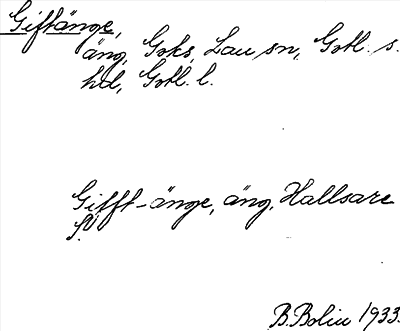 Giftänge,
äng, Goks, Lau sn, Gotl. s.
hd, Gotl. l.
Gifft-änge, äng, Hallsare
f.
B. Bolin 1933.